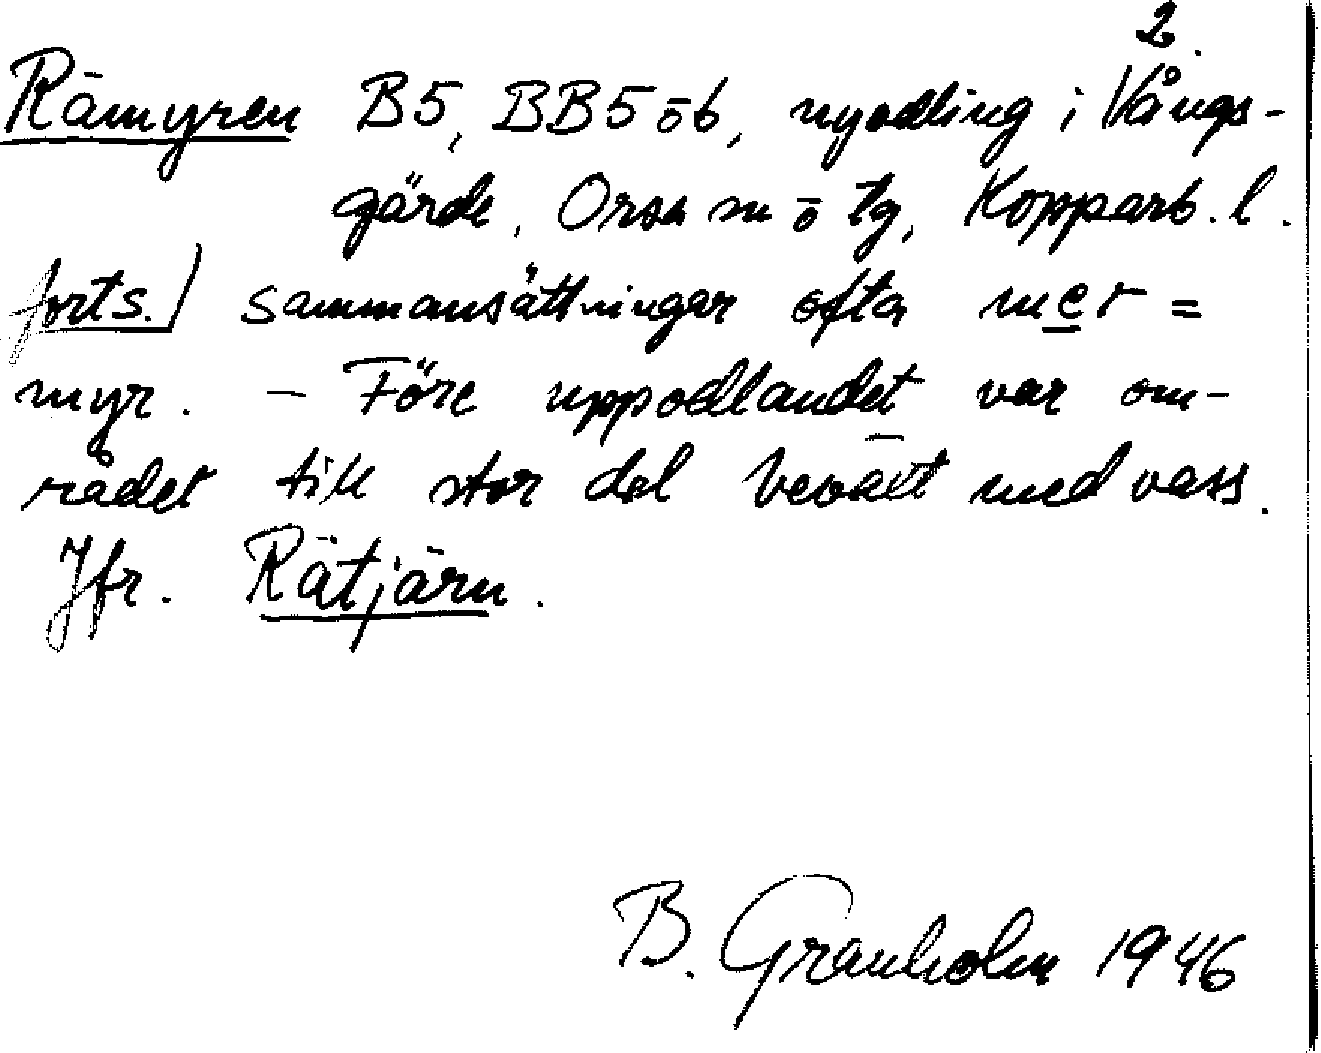 2.
Rämyren B5, BB5 öb, nyodling i Vångs-
gärde, Orsa sn o tg, Kopparb. l.
forts.) sammansättningar ofta mer =
myr. – Före uppodlandet var om-
rådet till stor del beväxt med vass.
Jfr. Rätjärn.
B. Granholm 1946